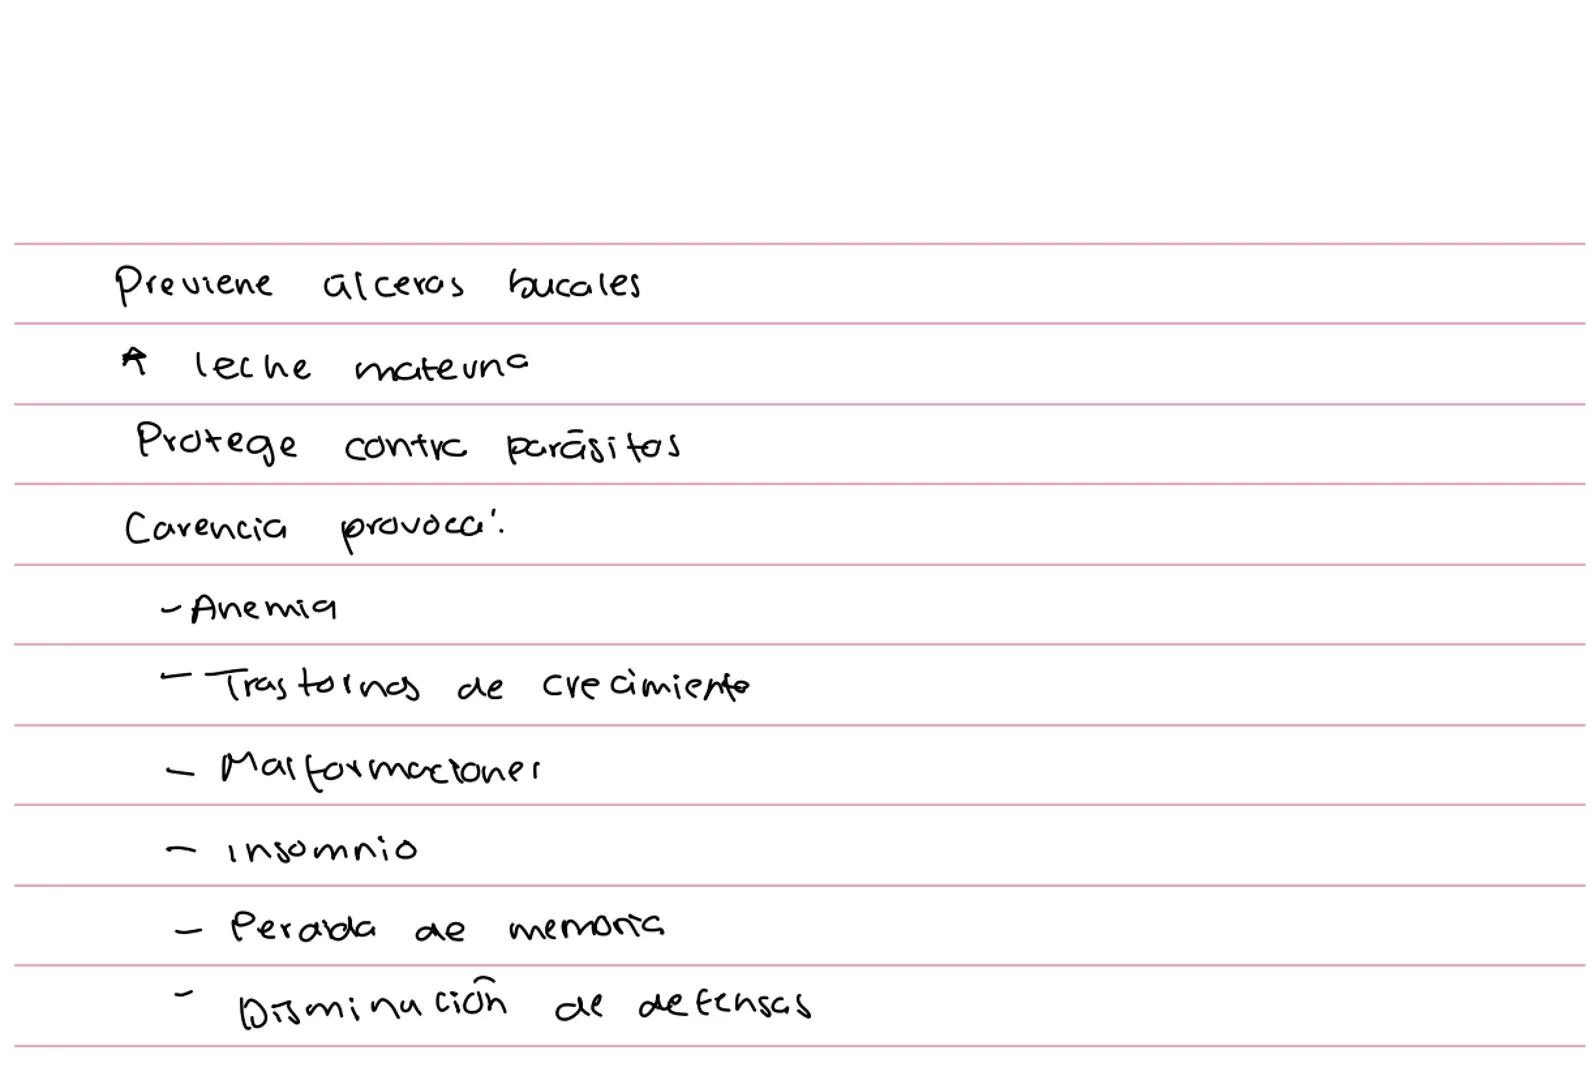 Previene úlceras bucales
↑ leche materna
Protege contra parásitos
Carencia provoca:
- Anemia
- Trastornos de crecimiento
- Malformaciones
- Insomnio
- Perdida de memoria
- Disminución de defensas